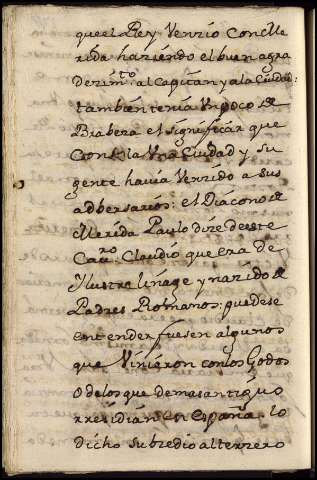 que el Rey Venzio Con Me
rida haziendo el buen agra
dezim.to al Capitan y a la Ciudad:
tambien tenia Un poco de
Brabera el significar que
Con sola Una Ciudad y su
gente havia Venzido a sus
adbersarios: el Diacono de
Merida Paulo dize de este
Cav.ro Claudio que era de
Ilustre linage y nazido de
Padres Romanos: puedese
entender fuesen algunos
que Viniaron con los Godos
O de los que de mas antiguo
rresidian en España. lo
dicho subzedio al terzero